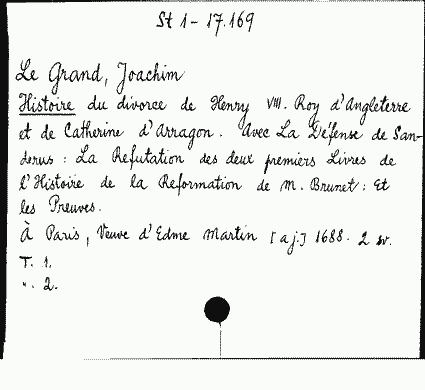 St 1 - 17.169
Le Grand, Joachim
Histoire du divorce de Henry VIII. Roy d'Angleterre
et de Catherine d'Arragon. Avec La Défense de San-
derus: La Refutation des deux premiers Livres de
l'Histoire de la Reformation de M. Brunet: Et
les Preuves.
À Paris, Veuve d'Edme Martin [a j.] 1688. 2 sv.
T. 1.
". 2.